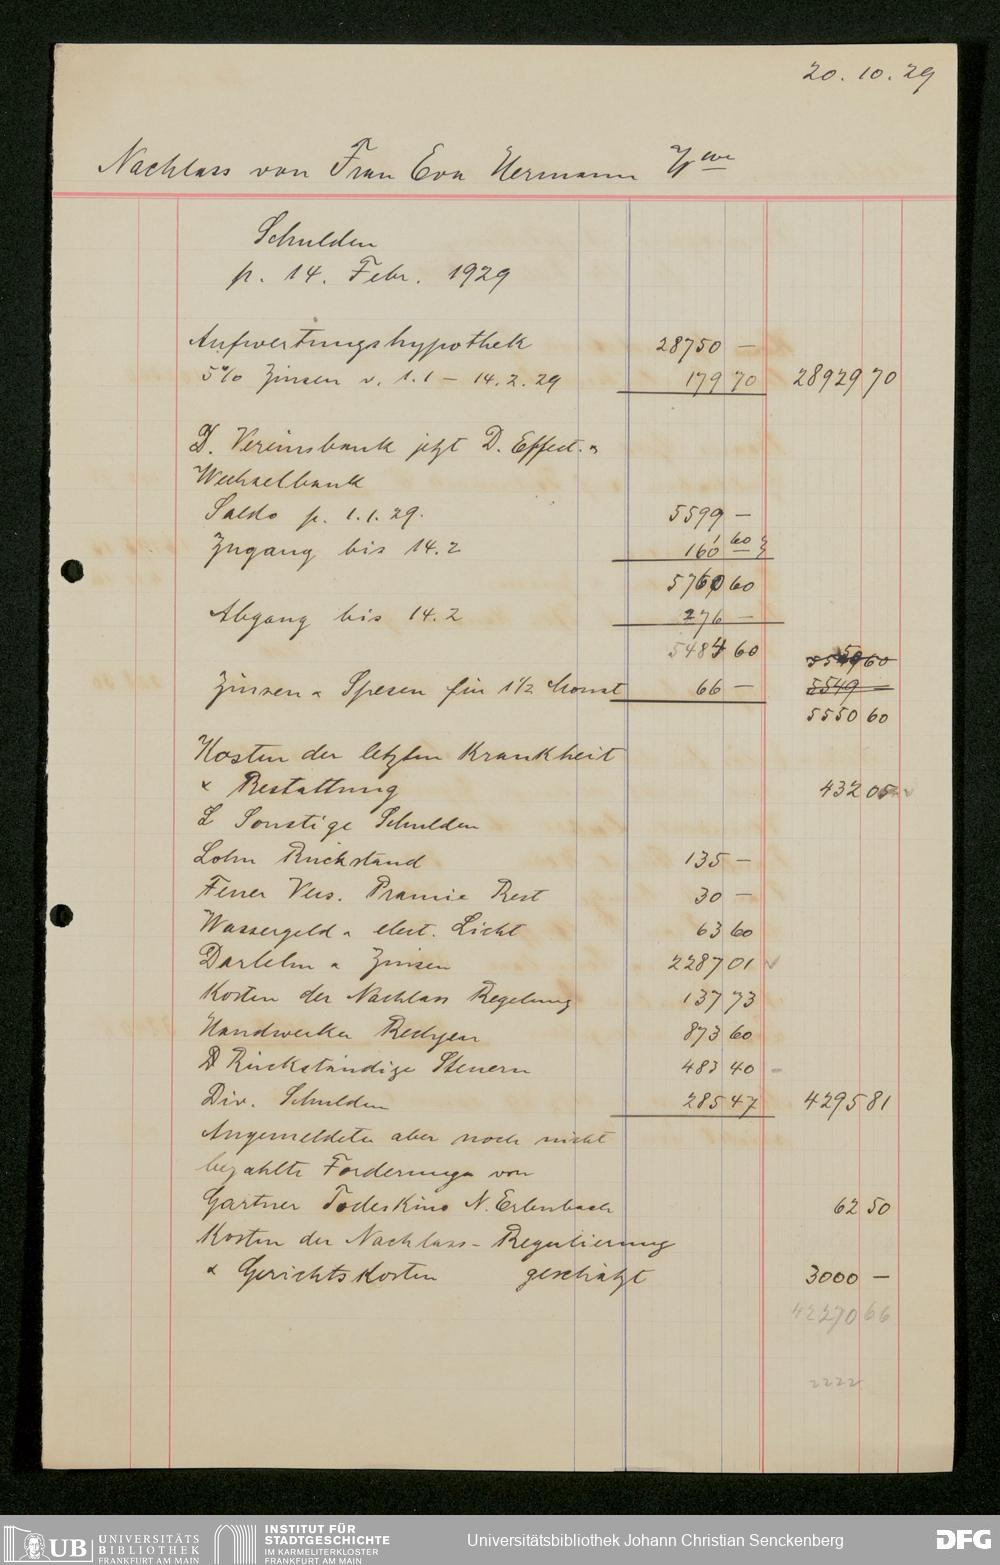 20. 10. 29
Nachlass von Frau Eva Hermann Wwe
Schulden
p. 14. Febr. 1929
Aufwertungshypothek 28750 —
5% Zinsen v. 1.1 — 14.2.29 179 70 28929 70
D. Vereinsbank jetzt D. Effect. u
Wechselbank
Saldo p. 1.1.29. 5599 —
Zugang bis 14.2 160 60
5760 60
Abgang bis 14.2 276 —
5484 60 5550 60
Zinsen u Spesen für 1 1/2 Monat 66 — 5549 —
5550 60
Kosten der letzten Krankheit
& Bestattung 432 05
L Sonstige Schulden
Lohn Rückstand 135 —
Feuer Vers. Pramie Rest 30 —
Wassergeld u elect. Licht 63 60
Darlehn u Zinsen 2287 01
Kosten der Nachlass Regelung 137 73
Handwerker Rechgen 873 60
Rückständige Steuern 483 40
Div. Schulden 285 47 4295 81
Angemeldete aber noch nicht
bezahlte Forderungen von
Gartner Todeskino N. Erlenbach 62 50
Kosten der Nachlass-Regulierung
& Gerichtskosten geschätzt 3000 —
42270 66
2222
UB UNIVERSITÄTS
BIBLIOTHEK
FRANKFURT AM MAIN
INSTITUT FÜR
STADTGESCHICHTE
IM KARMELITERKLOSTER
FRANKFURT AM MAIN
Universitätsbibliothek Johann Christian Senckenberg
DFG